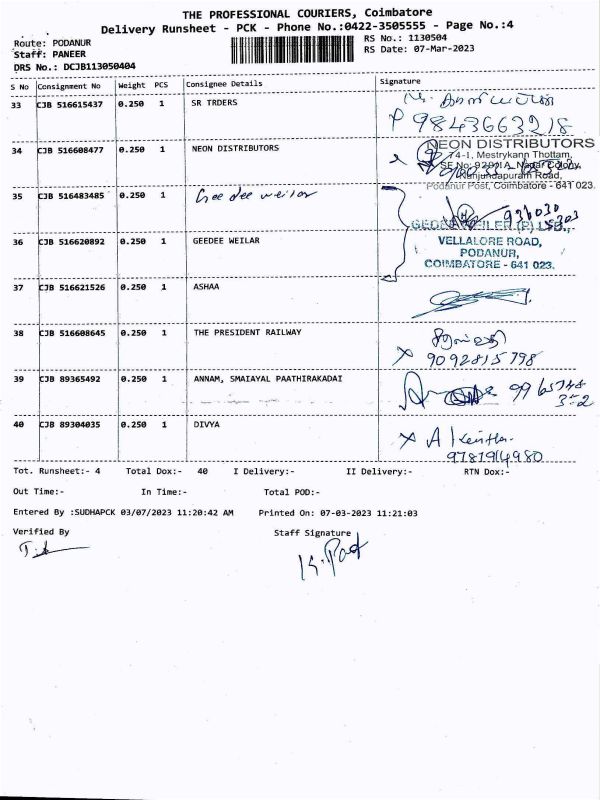 THE PROFESSIONAL COURIERS, Coimbatore
Delivery Runsheet - PCK - Phone No.:0422-3505555 - Page No.:4
Route: PODANUR
RS No.: 1130504
Staff: PANEER
RS Date: 07-Mar-2023
DRS No.: DCJB113050404
S No Consignment No Weight PCS Consignee Details Signature
33 CJB 516615437 0.250 1 SR TRDERS
P 9843663218
34 CJB 516608477 0.250 1 NEON DISTRIBUTORS
NEON DISTRIBUTORS
74-1, Mestrykann Thottam,
Nagar Colony,
Nanjundapuram Road,
Podanur Post, Coimbatore - 641 023.
35 CJB 516483485 0.250 1 Gee dee weilar
36 CJB 516620892 0.250 1 GEEDEE WEILAR
VELLALORE ROAD,
PODANUR,
COIMBATORE - 641 023.
37 CJB 516621526 0.250 1 ASHAA
38 CJB 516608645 0.250 1 THE PRESIDENT RAILWAY
X 9092815798
39 CJB 89365492 0.250 1 ANNAM, SMAIAYAL PAATHIRAKADAI
40 CJB 89304035 0.250 1 DIVYA
Tot. Runsheet:- 4 Total Dox:- 40 I Delivery:- II Delivery:- RTN Dox:-
Out Time:- In Time:- Total POD:-
Entered By :SUDHAPCK 03/07/2023 11:20:42 AM Printed On: 07-03-2023 11:21:03
Verified By Staff Signature